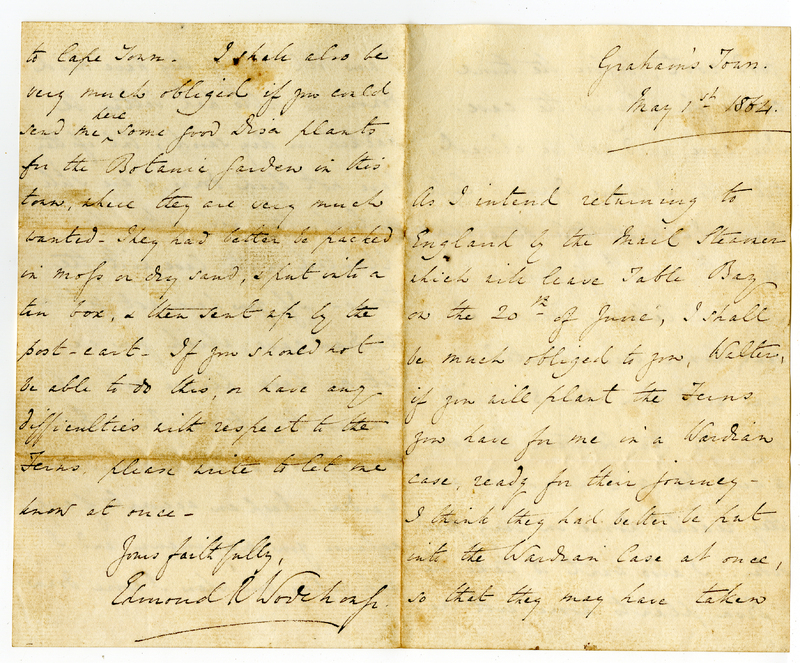 Graham's Town.
May 1st 1864.
As I intend returning to
England by the Mail Steamer
which will leave Table Bay
on the 20th of June, I shall
be much obliged to you, Walter,
if you will plant the Ferns
you have for me in a Wardian
case, ready for their journey-
I think they had better be put
into the Wardian Case at once,
so that they may have taken
to Cape Town. I shall also be
very much obliged if you could
send me here some good Disa plants
for the Botanic Garden in this
town, where they are very much
wanted- They had better be packed
in moss or dry sand, & put into a
tin box, & then sent up by the
post-cart- If you should not
be able to do this, or have any
difficulties with respect to the
Ferns, please write to let me
know at once-
Yours faithfully,
Edmond R Wodehouse.